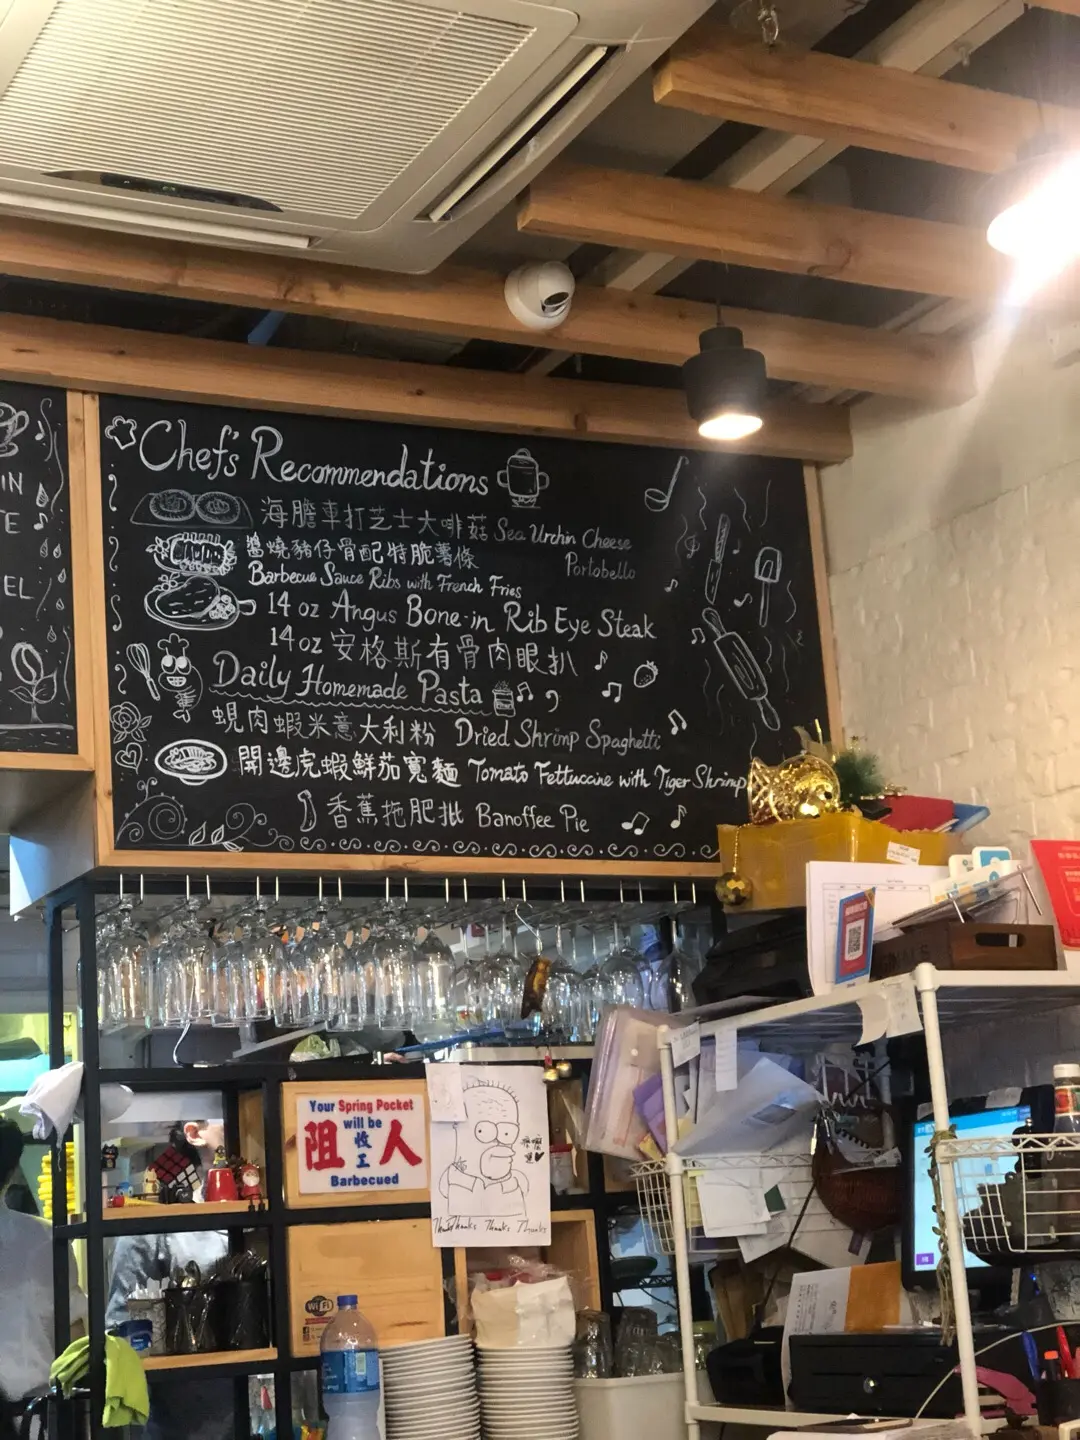 IN
TE
EL
Chef's Recommendations
海膽車打芝士大啡菇 Sea Urchin Cheese
Portobello
醬燒豬仔骨配特脆薯條
Barbecue Sauce Ribs with French Fries
14 oz Angus Bone-in Rib Eye Steak
14 oz 安格斯有骨肉眼扒
Daily Homemade Pasta
蜆肉蝦米意大利粉 Dried Shrimp Spaghetti
開邊虎蝦鮮茄寬麵 Tomato Fettuccine with Tiger Shrimp
香蕉拖肥批 Banoffee Pie
Your Spring Pocket
will be
阻收工人
Barbecued
Thanks Thanks Thanks Thanks
WiFi